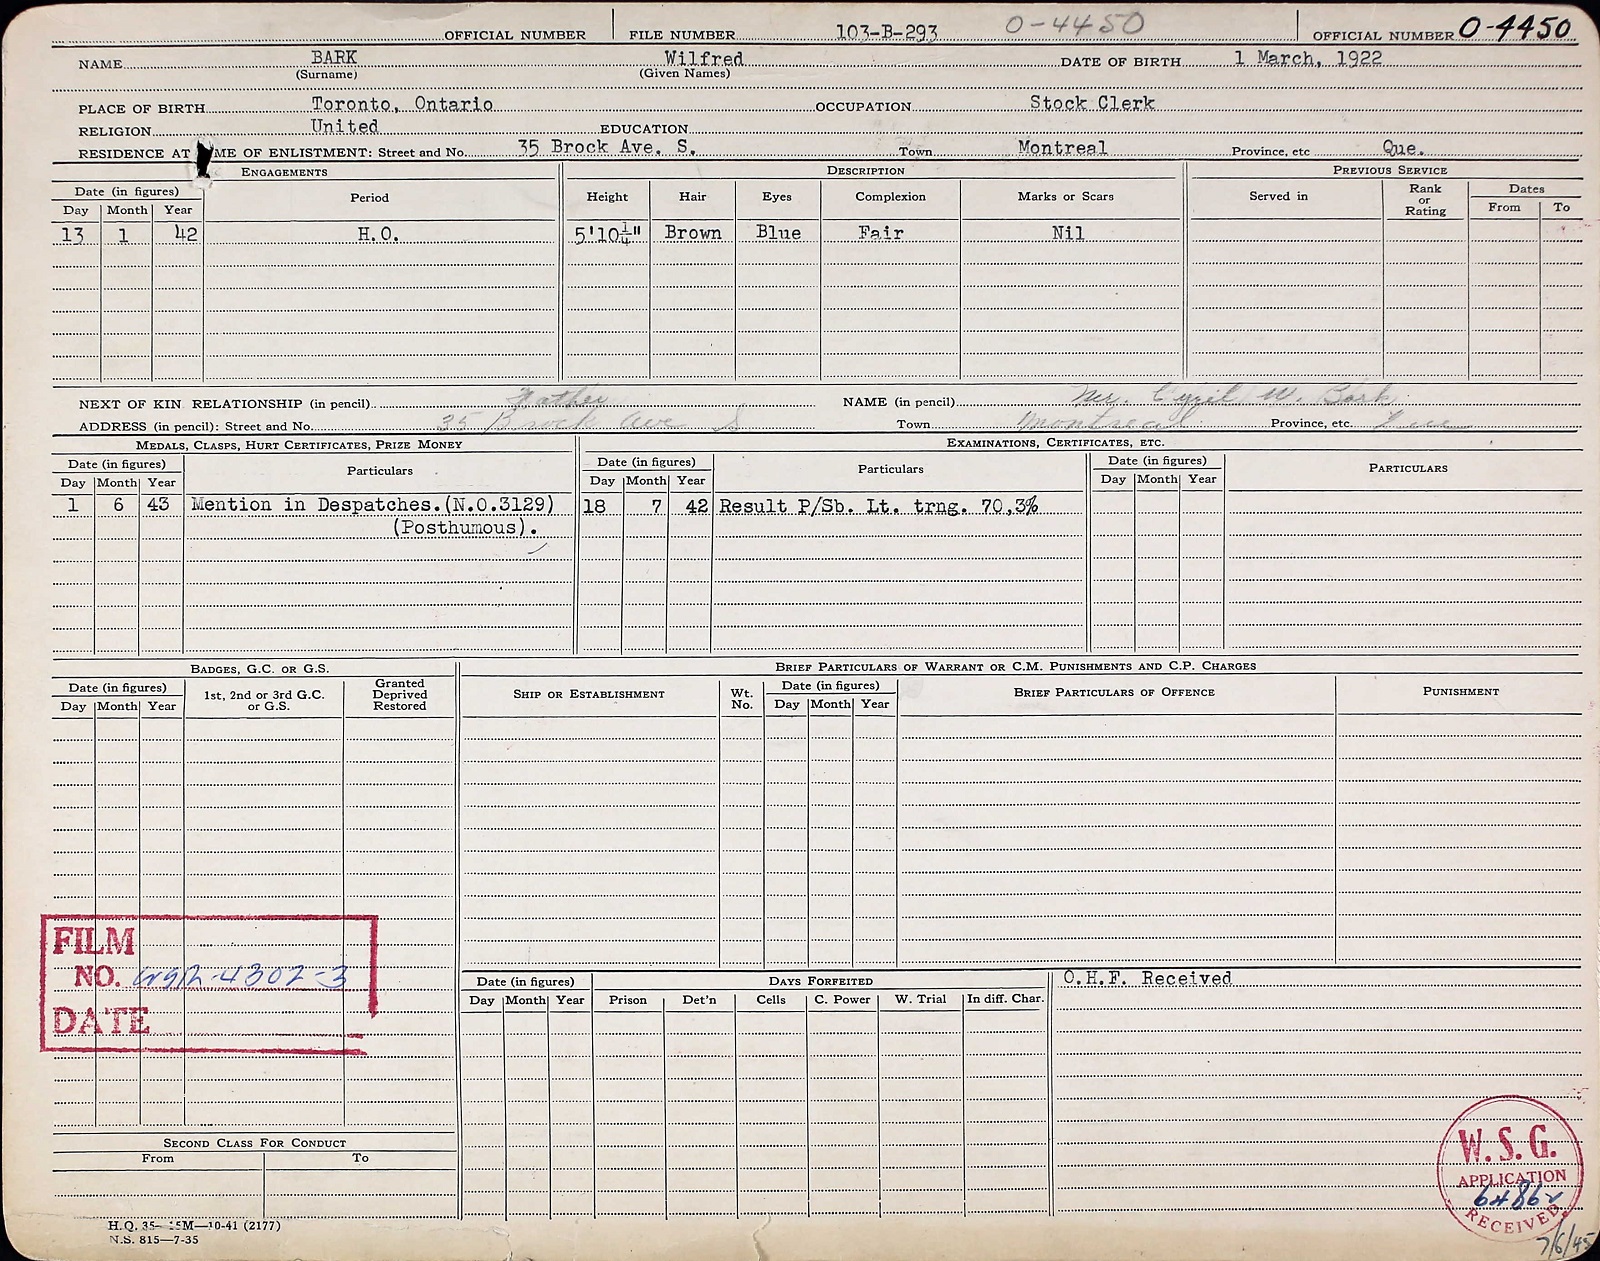 OFFICIAL NUMBER FILE NUMBER 103-B-293 O-4450 OFFICIAL NUMBER O-4450
NAME BARK Wilfred DATE OF BIRTH 1 March, 1922
(Surname) (Given Names)
PLACE OF BIRTH Toronto, Ontario OCCUPATION Stock Clerk
RELIGION United EDUCATION
RESIDENCE AT ME OF ENLISTMENT: Street and No. 35 Brock Ave. S. Town Montreal Province, etc Que.
ENGAGEMENTS DESCRIPTION PREVIOUS SERVICE
Date (in figures) Period Height Hair Eyes Complexion Marks or Scars Served in Rank or Rating Dates
Day Month Year From To
13 1 42 H.O. 5'10¼" Brown Blue Fair Nil
NEXT OF KIN RELATIONSHIP (in pencil) Father NAME (in pencil) Mr. Cyril W. Bark
ADDRESS (in pencil): Street and No. 35 Brock Ave S Town Montreal Province, etc. Que
MEDALS, CLASPS, HURT CERTIFICATES, PRIZE MONEY EXAMINATIONS, CERTIFICATES, ETC.
Date (in figures) Particulars Date (in figures) Particulars Date (in figures) PARTICULARS
Day Month Year Day Month Year Day Month Year
1 6 43 Mention in Despatches.(N.O.3129) 18 7 42 Result P/Sb. Lt. trng. 70,3%
(Posthumous).
BADGES, G.C. OR G.S. BRIEF PARTICULARS OF WARRANT OR C.M. PUNISHMENTS AND C.P. CHARGES
Date (in figures) 1st, 2nd or 3rd G.C. or G.S. Granted Deprived Restored SHIP OR ESTABLISHMENT Wt. No. Date (in figures) BRIEF PARTICULARS OF OFFENCE PUNISHMENT
Day Month Year Day Month Year
FILM
NO. 4302-3
DATE
Date (in figures) DAYS FORFEITED O.H.F. Received
Day Month Year Prison Det'n Cells C. Power W. Trial In diff. Char.
SECOND CLASS FOR CONDUCT
From To
W.S.G.
APPLICATION
RECEIVED
7/6/45
H.Q. 35- 15M—10-41 (2177)
N.S. 815—7-35